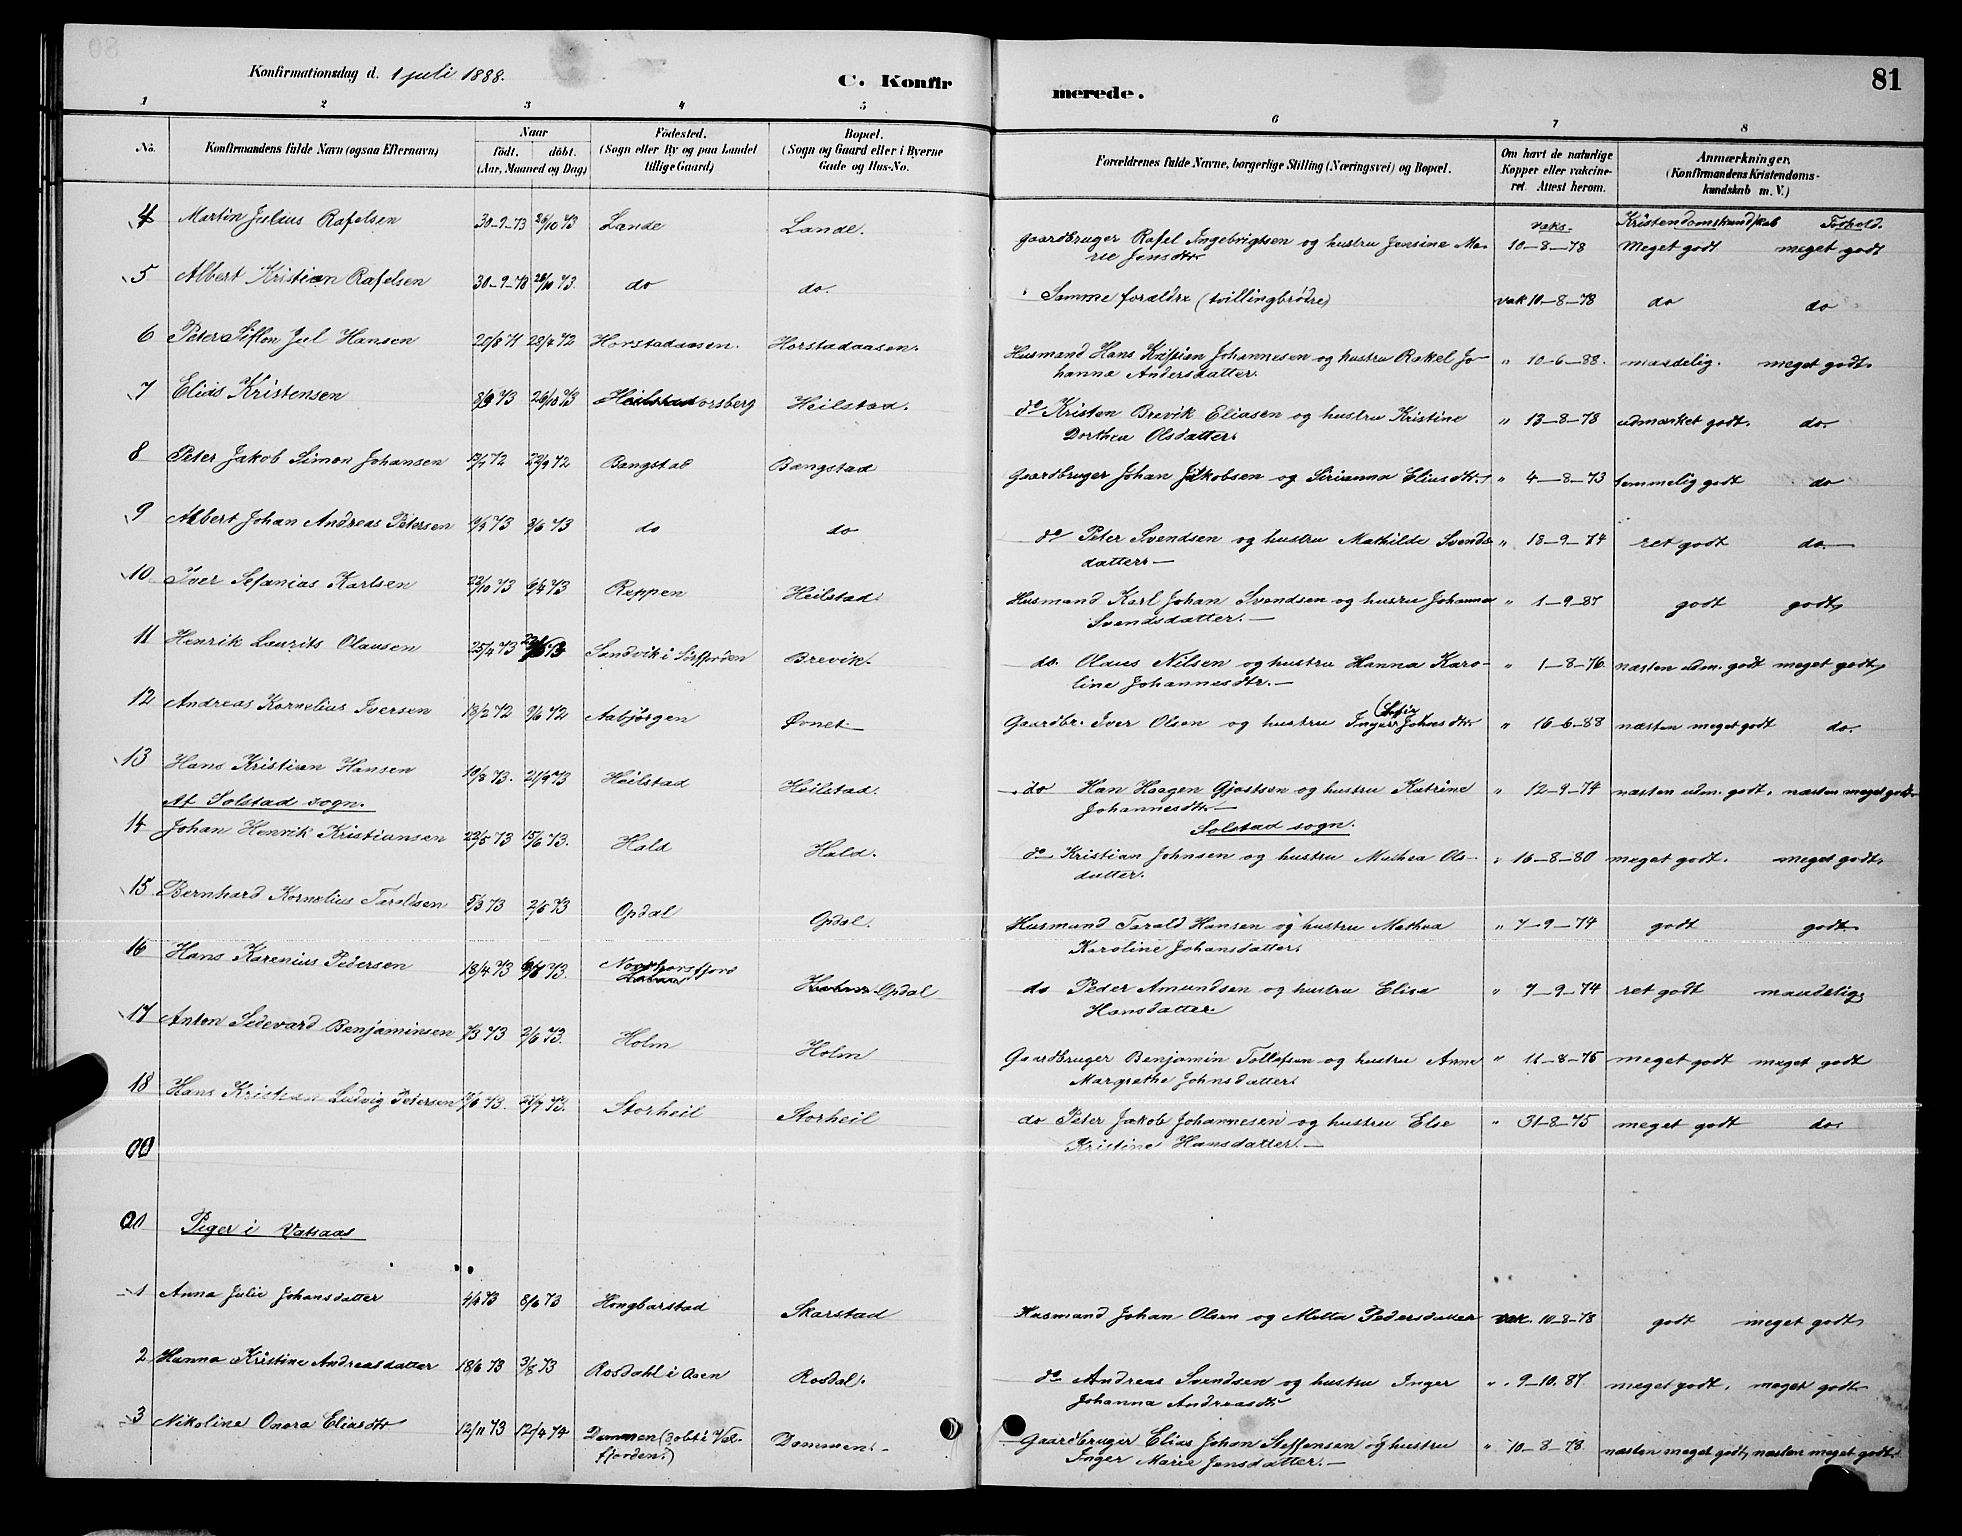 81
Konfirmationsdag d. 1 juli 1888.
C. Konfirmerede.
1 2 3 4 5 6 7 8
No.
Konfirmandens fulde Navn (ogsaa Efternavn)
Naar födt. döbt. (Aar, Maaned og Dag)
Födested. (Sogn eller By og paa Landet tillige Gaard)
Bopæl. (Sogn og Gaard eller i Byerne Gade og Hus-No.
Forældrenes fulde Navne, borgerlige Stilling (Næringsvei) og Bopæl.
Om havt de naturlige Kopper eller vakcineret. Attest herom.
Anmærkninger. (Konfirmandens Kristendomskundskab m. V.)
vaks. Kristendomskundskab Forhold.
4 Martin Julius Rafelsen 30-9-73 26/10 73 Lande Lande. Gaardbruger Rafel Ingebrigtsen og hustru Jensine Ma- 10-8-78 Meget godt meget godt
rie Jensdtr.
5 Albert Kristian Rafelsen 30-9-73 26/10 73. do do. Samme forældre (tvillingbrødre) vak 10-8-78 do do
6 Peter Jul Hansen 20/8 71 28/4 72 Horstadaasen. Horstadaasen. Husmand Hans Kristian Johannesen og hustru Rakel Jo- " 10-6-88. maadelig. meget godt.
hanna Andersdatter.
7 Elias Kristensen 8/9 73 26/10 73 Horsberg Heilstad. do Kristen Brevik Eliasen og hustru Kristine " 13-8-78 udmærket godt. do.
Dorthea Olsdatter.
8 Peter Jakob Simon Johansen 12/7 72 22/9 72 Bangstad Bangstad Gaardbruger Johan Jakobsen og Sirianna Eliasdtr. " 4-8-73 temmelig godt do
9 Albert Johan Andreas Petersen 19/3 73 8/6 73 do do do Peter Svendsen og hustru Mathilde Svends " 18-9-74 ret godt do.
datter.
10 Iver Sefanias Karlsen 22/10 73 6/4 73 Reppen Heilstad. Husmand Karl Johan Svendsen og hustru Johanna " 1-9-87 godt godt
Svendsdatter.
11 Henrik Laurits Olausen 25/4 73 Sandvik i Sörfjorden Brevik. do. Olaus Nilsen og hustru Hanna Karo- " 1-8-76. næsten udm. godt meget godt
line Johannesdtr.
12 Andreas Kornelius Iversen 13/2 72 9/6 72 Aabjörgen Øvnet Gaardbr. Iver Olsen og hustru Inger Johnsdtr " 16-6-88 næsten meget godt do.
13 Hans Kristian Hansen 10/8 73. 21/9 73 Heilstad Heilstad. do Han Haagen Gjastsen og hustru Katrine " 12-9-74 næsten udm. godt. næsten meget godt
Johannesdtr
Af Solstad sogn. Solstad sogn.
14 Johan Henrik Kristiansen 22/5 73 15/6 73. Hald Hald. do Kristian Johnsen og hustru Mathea Ols- " 16-8-80 meget godt. meget godt.
datter.
15 Bernhard Kornelius Taraldsen 5/3 73 2/6 73 Opdal Opdal. Husmand Tarald Hansen og hustru Mathea " 7-9-74 godt godt
Karoline Johansdatter.
16 Hans Karenius Pedersen 18/4 73 Nordhorsfjord Opdal do Peder Amundsen og hustru Elisa " 7-9-74 ret godt maadelig
Hansdatter.
17 Anton Sedevard Benjaminsen 7/3 73 2/6 73. Holm Holm Gaardbruger Benjamin Tollefsen og hustru Anne " 11-8-75 meget godt meget godt
Margrethe Johnsdatter.
18 Hans Kristian Ludvig Petersen 27/7 73. Storheil Storheil do Peter Jakob Johannesen og hustru Else " 31-8-75 meget godt do.
Kristine Hansdatter.
Piger i Vatsaas
1 Anna Julie Johansdatter 4/4 73 8/6 73 Hongbarstad Skarstad Husmand Johan Olsen og Metta Pedersdatter vak. 10-8-78 godt meget godt
2 Hanna Kristine Andreasdatter 18/6 73 3/8 73 Rosdahl i Aasen Rosdal. do Andreas Svendsen og hustru Inger " 9-10. 87. meget godt. meget godt
Johanna Andreasdtr
3 Nikoline Onora Eliasdtr 12/11 73 12/4 74 Dammen (døbt i Vel- Dammen. Gaardbruger Elias Johan Steffensen og hustru " 10-8-78. næsten meget godt, næsten meget godt.
fjorden.) Inger Marie Jensdatter.